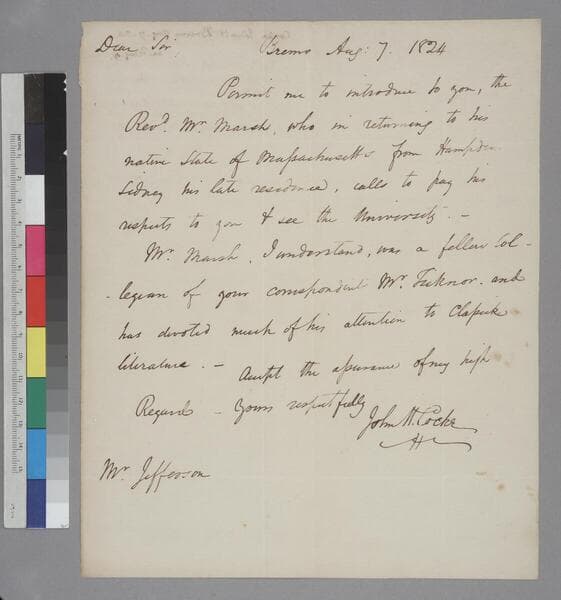 Dear Sir Bremo Aug: 7. 1824
Permit me to introduce to you, the
Revd. Mr. Marsh, who in returning to his
native State of Massachusetts from Hampden
Sidney his late residence, calls to pay his
respects to you & see the University. –
Mr. Marsh, I understand, was a fellow Col-
-legian of your correspondent Mr. Ticknor. and
has devoted much of his attention to Classick
literature. – Accept the assurance of my high
Regard – Yours respectfully
John H. Cocke
Mr. Jefferson